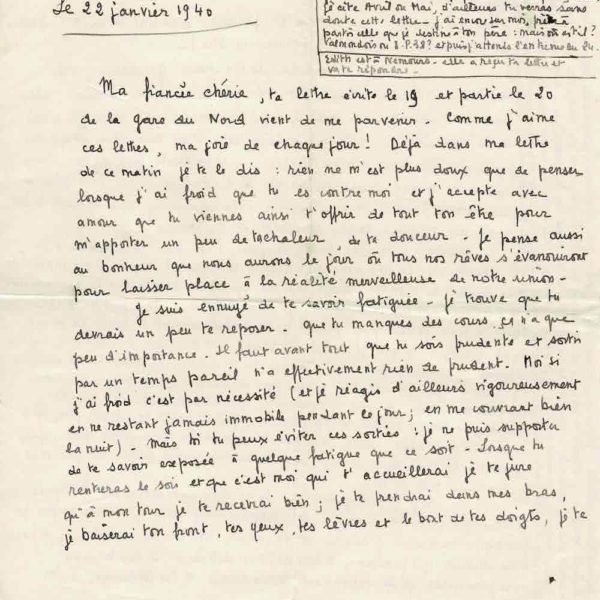 Le 22 janvier 1940
Avril ou Mai, d'ailleurs tu verras sans
doute cette lettre - j'ai encor sur moi, prête à
partir celle que je destine à ton père : mais où est-il ?
Valmondois ou I.P.38? et puis j'attends
Edith est à Nemours - elle a reçu ta lettre et
va te répondre.
Ma fiancée chérie, ta lettre écrite le 19 et partie le 20
de la gare du Nord vient de me parvenir. Comme j'aime
ces lettres, ma joie de chaque jour ! Déjà dans ma lettre
de ce matin je te le dis : rien ne m'est plus doux que de penser
lorsque j'ai froid que tu es contre moi et j'accepte avec
amour que tu viennes ainsi t'offrir de tout ton être pour
m'apporter un peu de ta chaleur, de ta douceur - Je pense aussi
au bonheur que nous aurons le jour où tous nos rêves s'évanouiront
pour laisser place à la réalité merveilleuse de notre union -
Je suis ennuyé de te savoir fatiguée - je trouve que tu
devrais un peu te reposer - que tu manques des cours, ça n'a que
peu d'importance. Il faut avant tout que tu sois prudente et sortir
par un temps pareil n'a effectivement rien de prudent. Moi si
j'ai froid c'est par nécessité (et je réagis d'ailleurs vigoureusement
en ne restant jamais immobile pendant le jour ; en me couvrant bien
la nuit) - Mais si tu peux éviter ces sorties : je ne puis supporter
de te savoir exposée à quelque fatigue que ce soit - Lorsque tu
rentreras le soir et que c'est moi qui t'accueillerai je te jure
qu'à mon tour je te recevrai bien ; je te prendrai dans mes bras,
je baiserai ton front, tes yeux, tes lèvres et le bout de tes doigts, je te